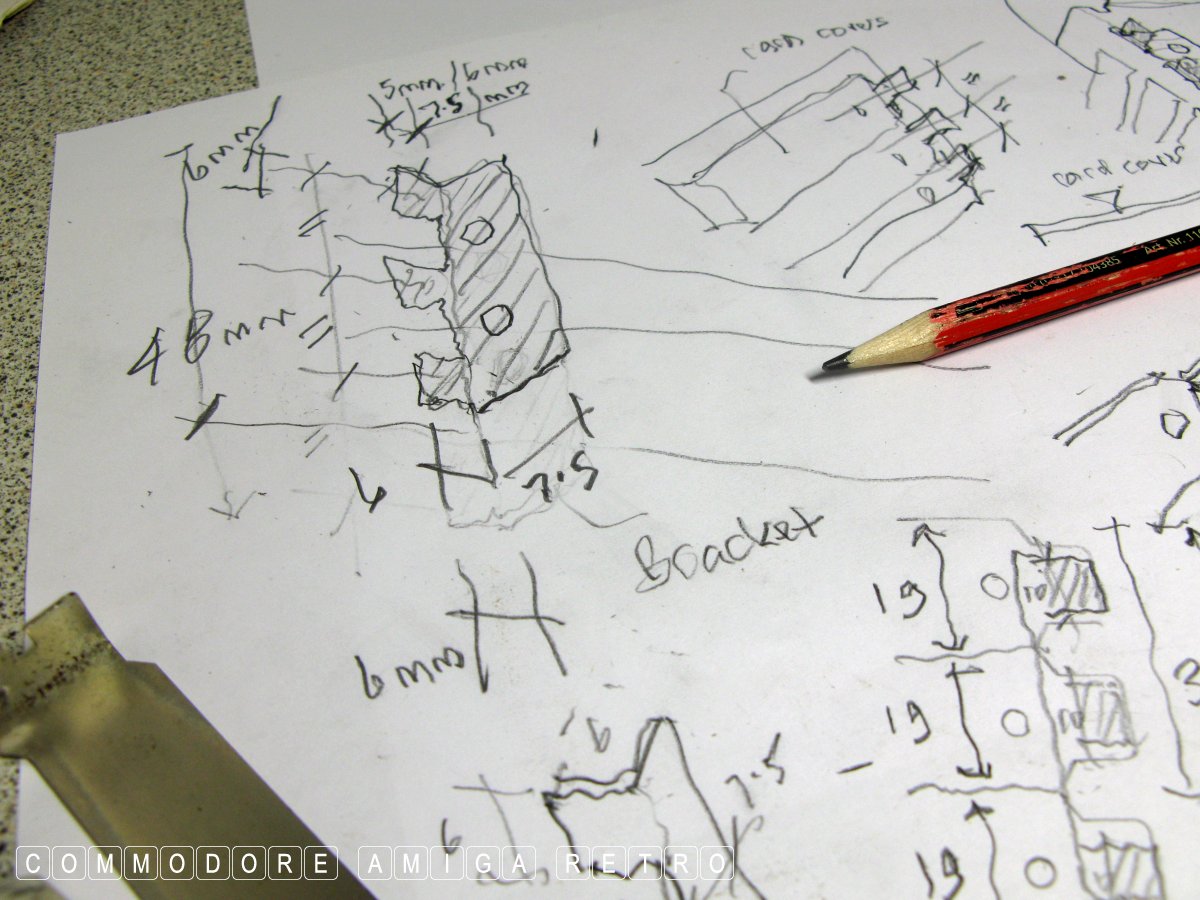 card covers
5mm / 6mm
7.5 mm
6mm
card covers
04385 Art Nr. 110
48mm
6
7.5
Bracket
19
10
6mm
19
10
16
7.5
6
19
COMMODORE AMIGA RETRO